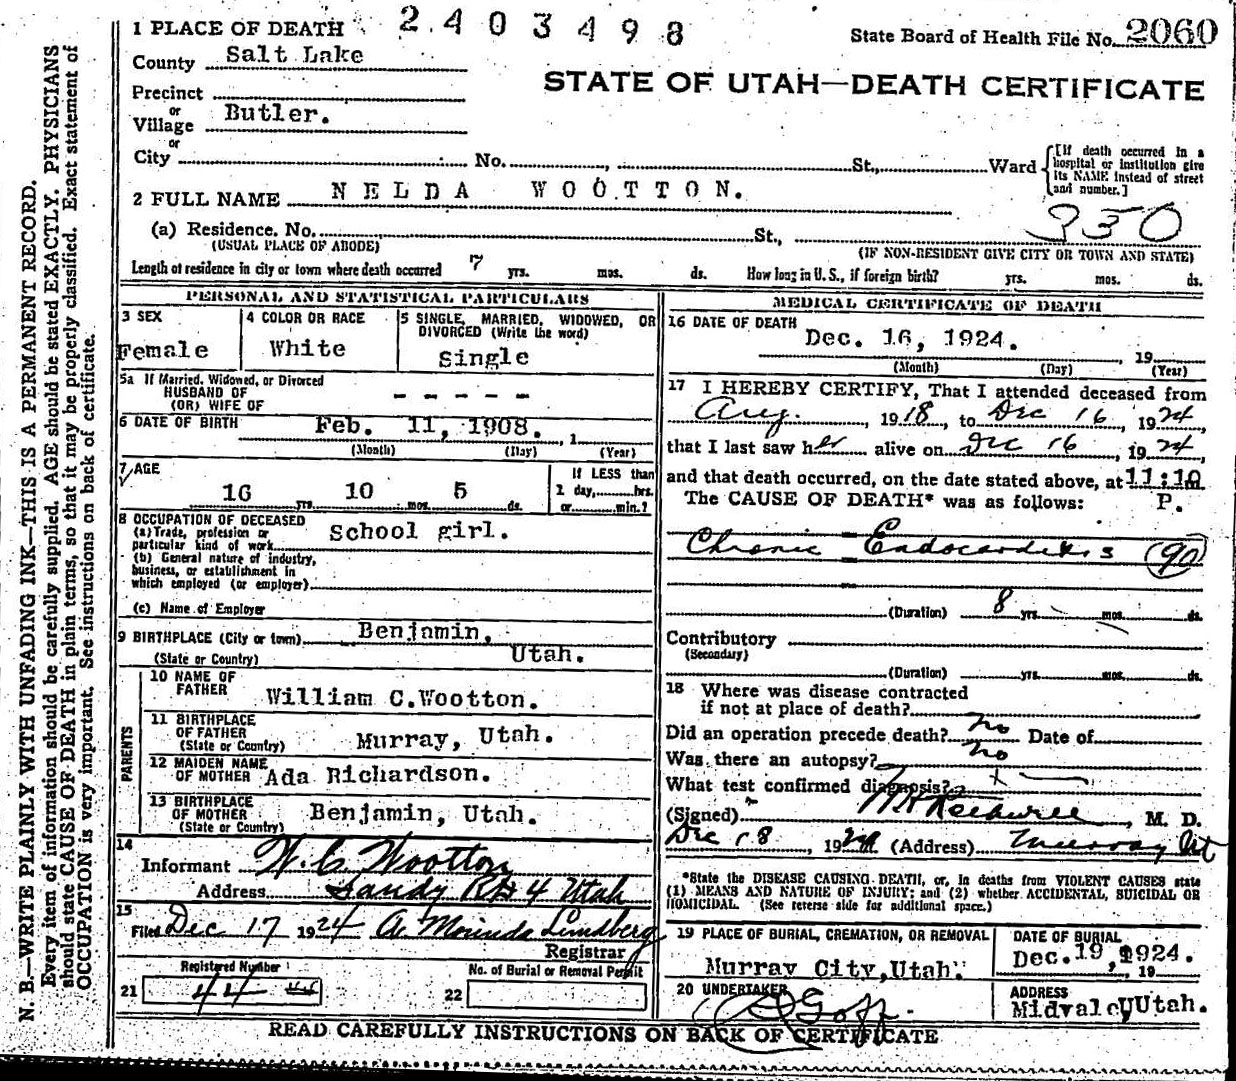 N. B.—WRITE PLAINLY WITH UNFADING INK—THIS IS A PERMANENT RECORD.
Every item of information should be carefully supplied. AGE should be stated EXACTLY. PHYSICIANS
should state CAUSE OF DEATH in plain terms, so that it may be properly classified. Exact statement of
OCCUPATION is very important. See instructions on back of certificate.
2403498
1 PLACE OF DEATH
State Board of Health File No. 2060
County Salt Lake
STATE OF UTAH—DEATH CERTIFICATE
Precinct
or
Village Butler.
or
City No. St., Ward
[If death occurred in a
hospital or institution give
its NAME instead of street
and number.]
2 FULL NAME NELDA WOOTTON.
350
(a) Residence. No. St.,
(USUAL PLACE OF ABODE) (IF NON-RESIDENT GIVE CITY OR TOWN AND STATE)
Length of residence in city or town where death occurred 7 yrs. mos. ds. How long in U. S., if foreign birth? yrs. mos. ds.
PERSONAL AND STATISTICAL PARTICULARS
3 SEX
Female
4 COLOR OR RACE
White
5 SINGLE, MARRIED, WIDOWED, OR
DIVORCED (Write the word)
Single
5a If Married, Widowed, or Divorced
HUSBAND OF
(OR) WIFE OF
- - - - -
6 DATE OF BIRTH Feb. 11, 1908. , 1
(Month) (Day) (Year)
7 AGE
16 yrs. 10 mos. 5 ds.
If LESS than
1 day, hrs.
or min.?
8 OCCUPATION OF DECEASED
(a) Trade, profession or
particular kind of work School girl.
(b) General nature of industry,
business, or establishment in
which employed (or employer)
(c) Name of Employer
9 BIRTHPLACE (City or town) Benjamin,
(State or Country) Utah.
PARENTS
10 NAME OF
FATHER William C.Wootton.
11 BIRTHPLACE
OF FATHER
(State or Country) Murray, Utah.
12 MAIDEN NAME
OF MOTHER Ada Richardson.
13 BIRTHPLACE
OF MOTHER
(State or Country) Benjamin, Utah.
14
Informant W. C. Wootton
Address Sandy RD 4 Utah
15
Filed Dec 17 1924 A. Morinda Lundberg
Registrar
Registered Number
21 44 44
No. of Burial or Removal Permit
22
MEDICAL CERTIFICATE OF DEATH
16 DATE OF DEATH
Dec. 16, 1924. , 19
(Month) (Day) (Year)
17 I HEREBY CERTIFY, That I attended deceased from
Aug. 1918, to Dec 16, 1924
that I last saw her alive on Dec 16, 1924,
and that death occurred, on the date stated above, at 11:10 m.
The CAUSE OF DEATH* was as follows: P.
Chronic Endocarditis 90
(Duration) 8 yrs. mos. ds.
Contributory
(Secondary)
(Duration) yrs. mos. ds.
18 Where was disease contracted
if not at place of death?
Did an operation precede death? no Date of
Was there an autopsy? no
What test confirmed diagnosis? x
(Signed) , M. D.
Dec 18, 1924 (Address) Murray Ut
*State the DISEASE CAUSING DEATH, or, in deaths from VIOLENT CAUSES state
(1) MEANS AND NATURE OF INJURY; and (2) whether ACCIDENTAL, SUICIDAL OR
HOMICIDAL. (See reverse side for additional space.)
19 PLACE OF BURIAL, CREMATION, OR REMOVAL
Murray City,Utah.
DATE OF BURIAL
Dec.19, 1924.
, 19
20 UNDERTAKER
Goff.
ADDRESS
Midvale, Utah.
READ CAREFULLY INSTRUCTIONS ON BACK OF CERTIFICATE